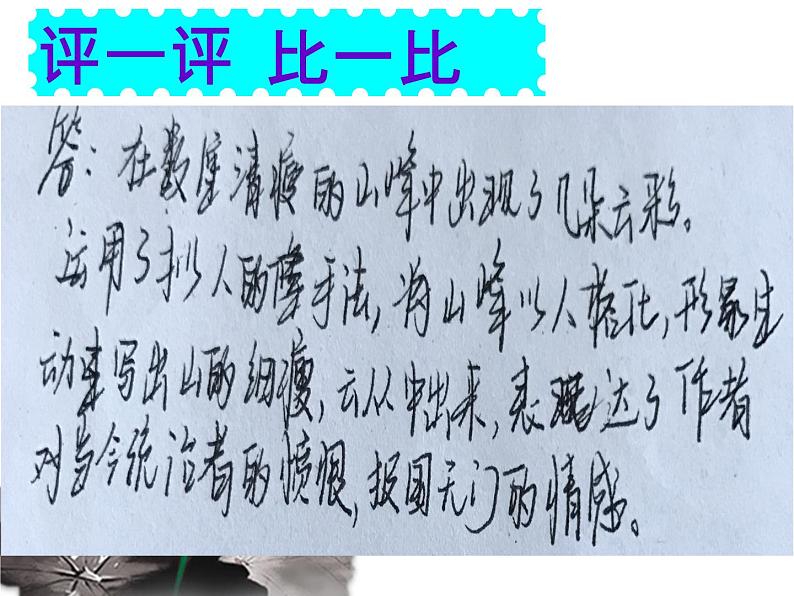 评一评 比一比
答：在数座清瘦的山峰中出现了几朵云彩。
运用了拟人的手法，将山峰以人格化，形象生
动地写出山的细瘦，云从中出来，表达了作者
对当今统治者的愤恨，报国无门的情感。